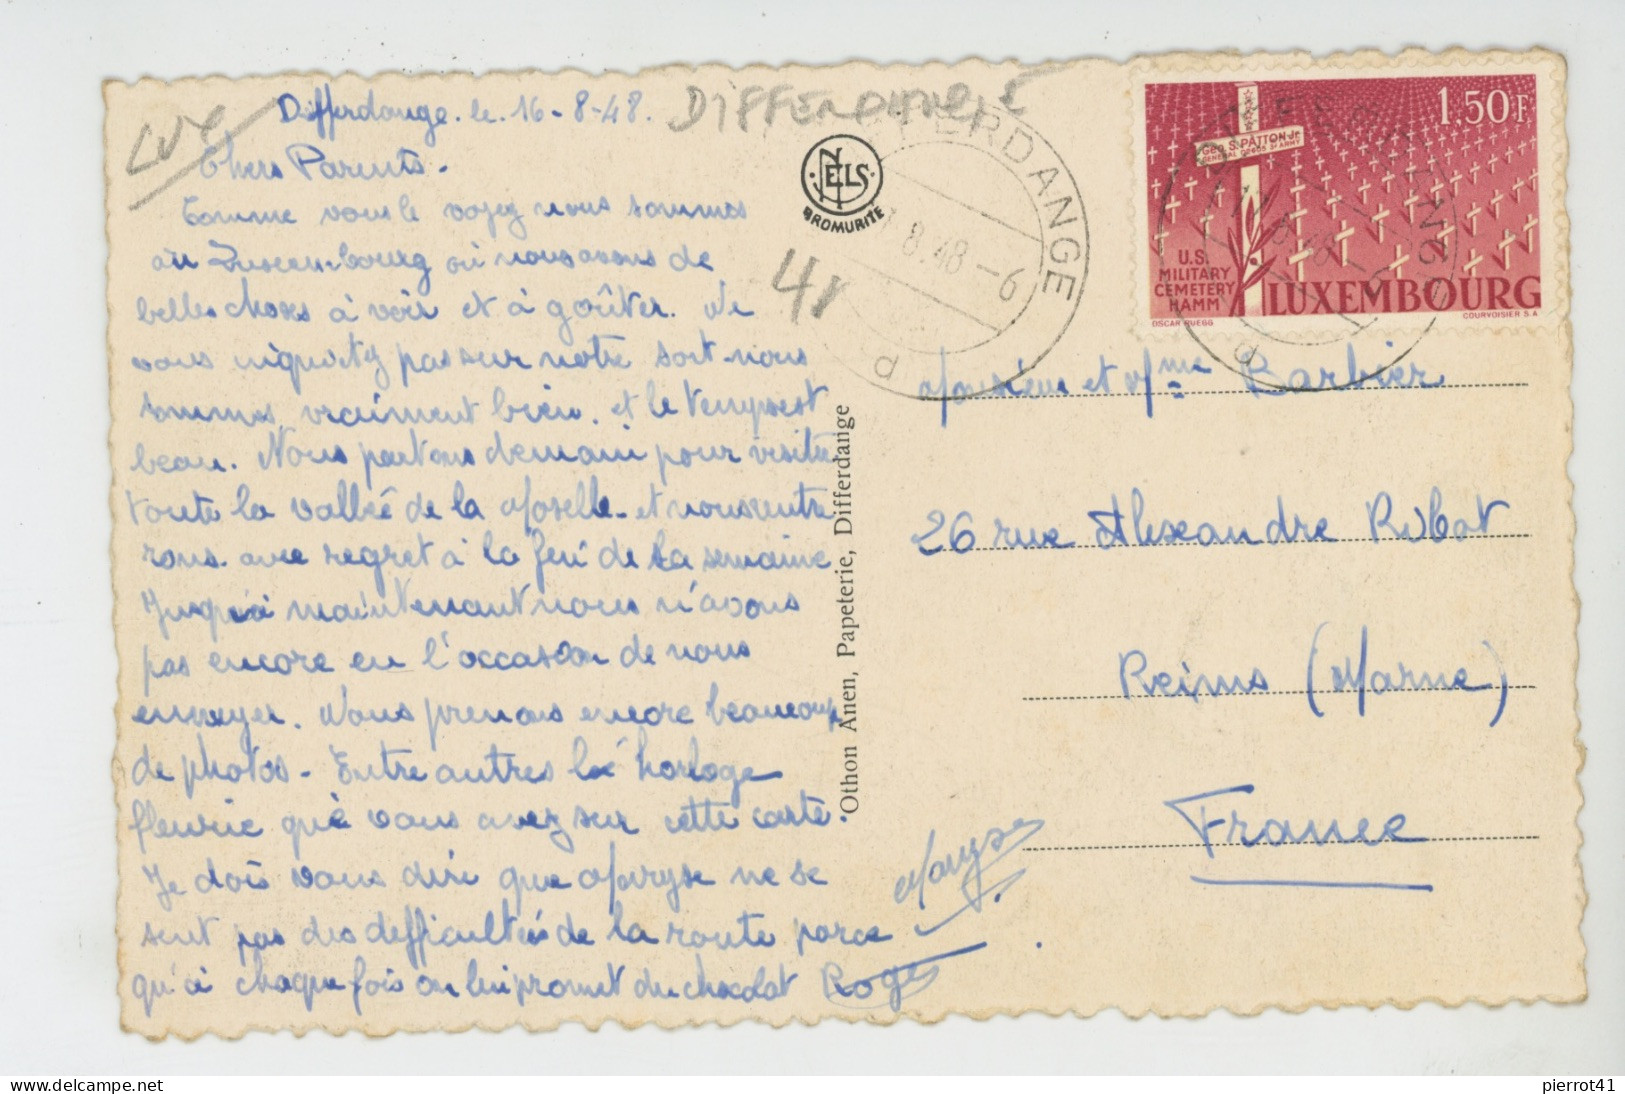 Differdange. le. 16-8-48.
DIFFERDANGE
LUX
Chers Parents.
Comme vous le voyez nous sommes
au Luxembourg où nous avons de
belles choses à voir et à goûter. Ne
vous inquietez pas sur notre sort. nous
sommes vraiment bien. et le temps est
beau. Nous partons demain pour visiter
toute la vallée de la Moselle. et nous rentre
rons. avec regret à la fin de la semaine
Jusqu'à maintenant nous n'avons
pas encore eu l'occasion de nous
ennuyer. Nous prenons encore beaucoup
de photos. Entre autres la horloge
fleurie que vous avez sur cette carte.
Je dois vous dire que Maryse ne se
sent pas des difficultés de la route parce
qu'à chaque fois on lui promet du chocolat
Roger
Maryse
48
NELS
BROMURITE
Othon Anen, Papeterie, Differdange
DIFFERDANGE
8.48-6
P
GEO S. PATTON Jr
GENERAL COMDG 3d ARMY
1,50 F
U.S.
MILITARY
CEMETERY
HAMM
LUXEMBOURG
OSCAR RUEGG
COURVOISIER S.A.
Monsieur et Mme Barbier
26 rue Alexandre Ribot
Reims (Marne)
France
pierrot41